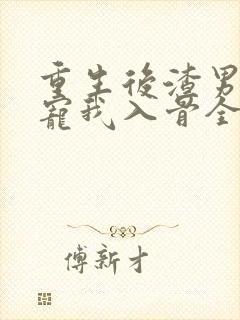 重生後渣男
寵我入骨全
傅新才